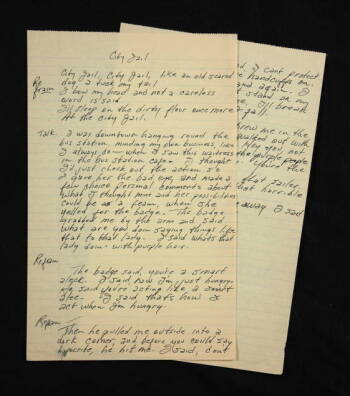 City Jail
City Jail, City Jail, like an old scared
dog I tuck my tail
Refrain
I bow my head and not a careless
word is said
I'll sleep on the dirty floor once more
At the City Jail.
Talk I was downtown hanging round the
bus station, minding my own business, like
I always do when I saw this waitress
in the bus station cafe. I thought
I'd just check out the action so
I gave her the bad eye, and made a
few choice personal comments about
what I thought mine and her possibilities
could be as a team, when she
yelled for the badge. The badge
grabbed me by the arm and said
what are you doin saying things like
that to that lady. I said whats that
lady doin with purple hair.
Refrain
The badge said, you're a smart
aleck. I said naw I'm just hungry.
He said you're acting like a smart
alec. I said that's how I
act when I'm hungry.
Refrain
Then he pulled me outside into a
dark corner, and before you could say
hypocrite, he hit me. I said, don't
I cant protect
handcuffs on.
again. I
stand on my
I'll break
threw me in the
walked out with
Hey, you're not
the purple people
that sailor,
that horrible
away I said